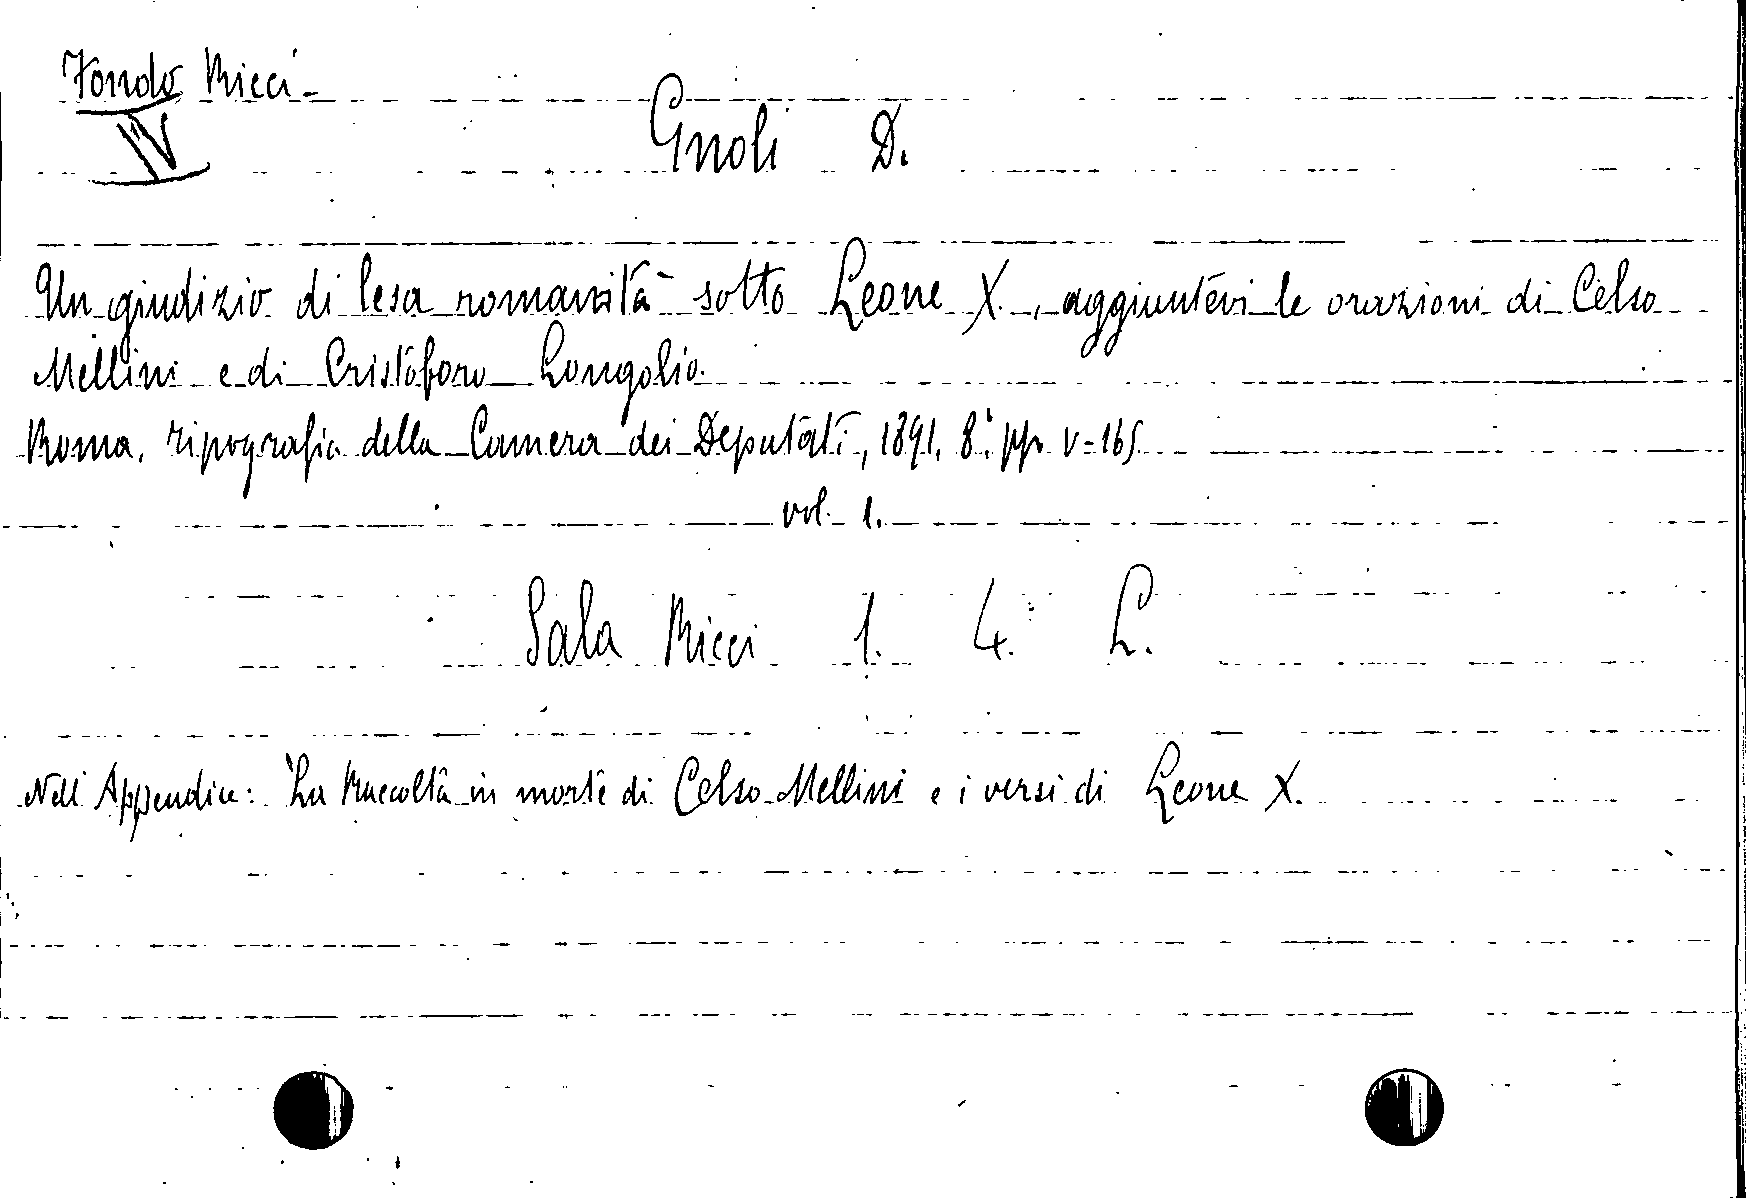 Fondo Ricci -
IV
Gnoli D.
Un giudizio di lesa romanità sotto Leone X., aggiuntevi le orazioni di Celso
Mellini e di Cristoforo Longolio.
Roma, tipografia della Camera dei Deputati, 1891, 8°, pp. V-165
vol. 1.
Sala Ricci 1. 4. L.
Nell'Appendice: La Raccolta in morte di Celso Mellini e i versi di Leone X.